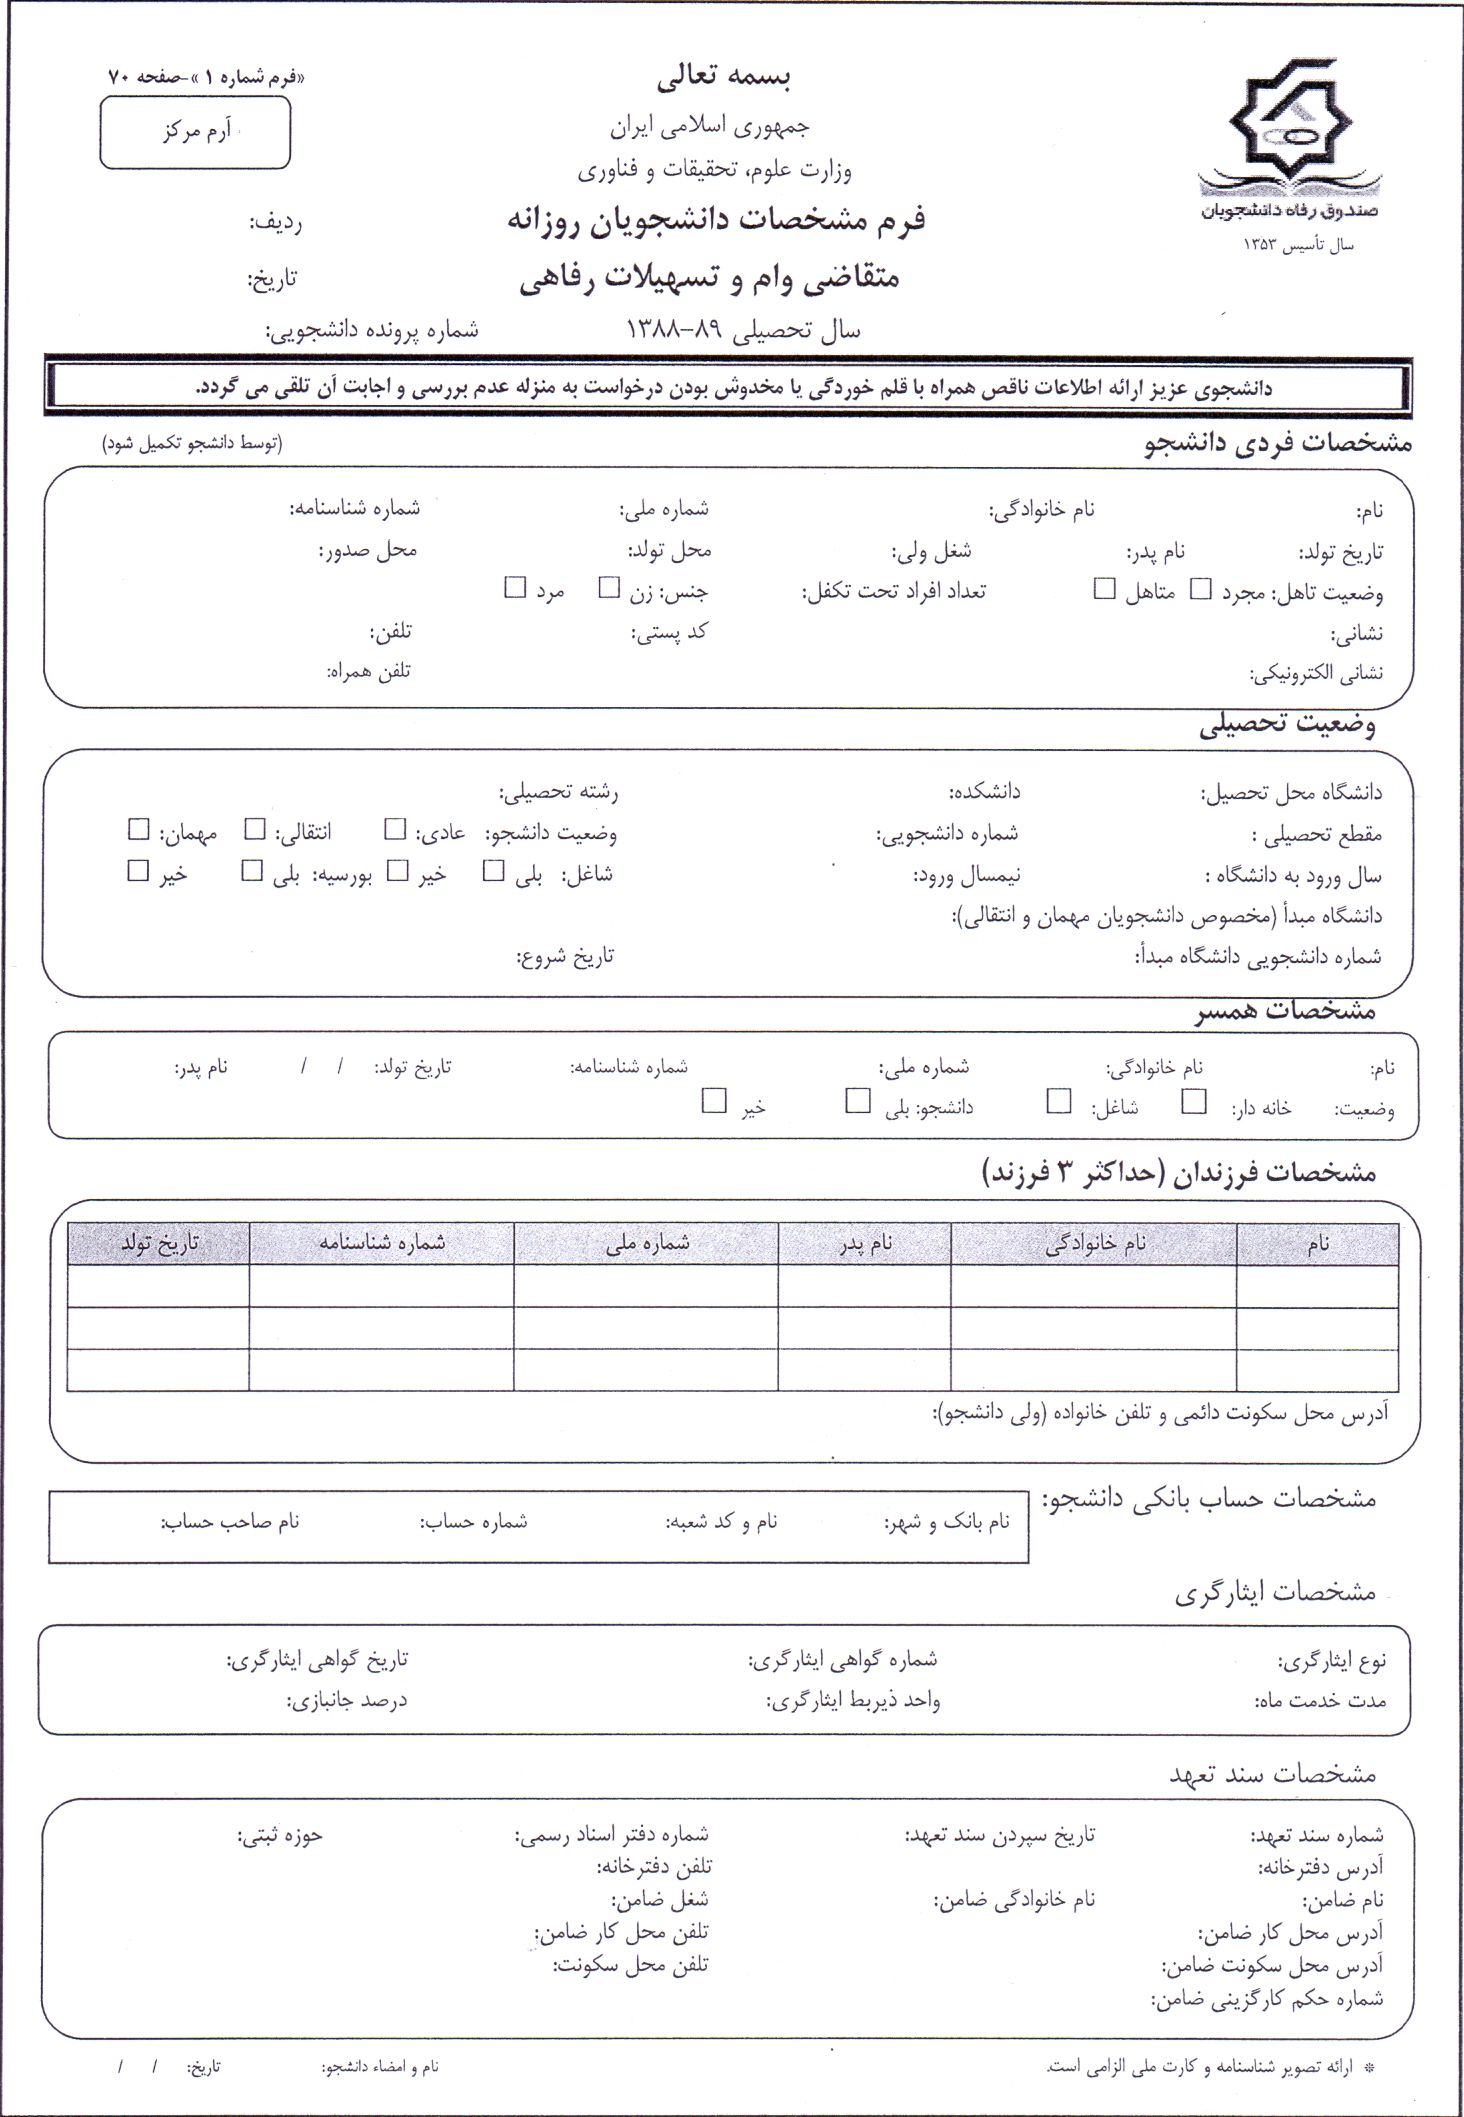 بسمه تعالی
«فرم شماره ۱»-صفحه ۷۰
جمهوری اسلامی ایران
آرم مرکز
وزارت علوم، تحقیقات و فناوری
صندوق رفاه دانشجویان
سال تأسیس ۱۳۵۳
فرم مشخصات دانشجویان روزانه
ردیف:
متقاضی وام و تسهیلات رفاهی
تاریخ:
سال تحصیلی ۸۹-۱۳۸۸
شماره پرونده دانشجویی:
دانشجوی عزیز ارائه اطلاعات ناقص همراه با قلم خوردگی یا مخدوش بودن درخواست به منزله عدم بررسی و اجابت آن تلقی می گردد.
مشخصات فردی دانشجو (توسط دانشجو تکمیل شود)
نام: نام خانوادگی: شماره ملی: شماره شناسنامه:
تاریخ تولد: نام پدر: شغل ولی: محل تولد: محل صدور:
وضعیت تاهل: مجرد □ متاهل □ تعداد افراد تحت تکفل: جنس: زن □ مرد □
نشانی: کد پستی: تلفن:
نشانی الکترونیکی: تلفن همراه:
وضعیت تحصیلی
دانشگاه محل تحصیل: دانشکده: رشته تحصیلی:
مقطع تحصیلی : شماره دانشجویی: وضعیت دانشجو: عادی: □ انتقالی: □ مهمان: □
سال ورود به دانشگاه : نیمسال ورود: شاغل: بلی □ خیر □ بورسیه: بلی □ خیر □
دانشگاه مبدأ (مخصوص دانشجویان مهمان و انتقالی):
شماره دانشجویی دانشگاه مبدأ: تاریخ شروع:
مشخصات همسر
نام: نام خانوادگی: شماره ملی: شماره شناسنامه: تاریخ تولد: / / نام پدر:
وضعیت: خانه دار: □ شاغل: □ دانشجو: بلی □ خیر □
مشخصات فرزندان (حداکثر ۳ فرزند)
نام نام خانوادگی نام پدر شماره ملی شماره شناسنامه تاریخ تولد
آدرس محل سکونت دائمی و تلفن خانواده (ولی دانشجو):
مشخصات حساب بانکی دانشجو:
نام بانک و شهر: نام و کد شعبه: شماره حساب: نام صاحب حساب:
مشخصات ایثارگری
نوع ایثارگری: شماره گواهی ایثارگری: تاریخ گواهی ایثارگری:
مدت خدمت ماه: واحد ذیربط ایثارگری: درصد جانبازی:
مشخصات سند تعهد
شماره سند تعهد: تاریخ سپردن سند تعهد: شماره دفتر اسناد رسمی: حوزه ثبتی:
آدرس دفترخانه: تلفن دفترخانه:
نام ضامن: نام خانوادگی ضامن: شغل ضامن:
آدرس محل کار ضامن: تلفن محل کار ضامن:
آدرس محل سکونت ضامن: تلفن محل سکونت:
شماره حکم کارگزینی ضامن:
* ارائه تصویر شناسنامه و کارت ملی الزامی است. نام و امضاء دانشجو: تاریخ: / /